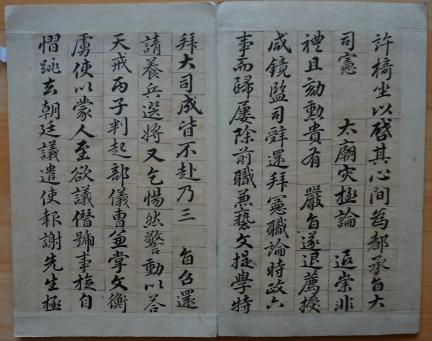 許椅坐以啓其心間爲都承旨大
司憲 太廟灾極論 追崇非
禮且劾勳貴有 嚴旨遂退薦授
咸鏡監司辭還拜憲職論時政六
事而歸屢除前職兼藝文提學特
拜大司成皆不赴乃三 旨召還
請養兵選將又乞惕然警動以答
天戒丙子判起部儀曹並掌文衡
虜使以蒙人至欲議僭號事松自
慴跳去朝廷議遣使報謝先生極